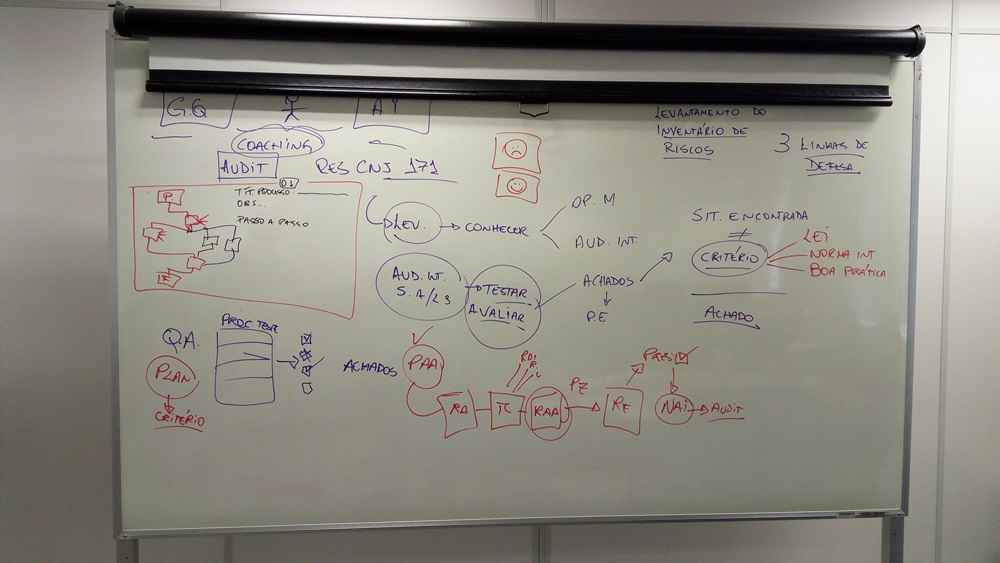 G.Q
A.I
COACHING
AUDIT
RES CNJ 171
LEVANTAMENTO DO
INVENTÁRIO DE
RISCOS
3 LINHAS DE
DEFESA
01
TÍT. PROCESSO
OBS...
PASSO A PASSO
P
LEV.
CONHECER
OP. M
AUD. INT.
SIT. ENCONTRADA
≠
CRITÉRIO
LEI
NORMA INT
BOA PRÁTICA
ACHADO
AUD. INT.
TESTAR
AVALIAR
ACHADOS
P.E
Q.A.
PLAN
CRITÉRIO
PROC TEST
ACHADOS
PAA
RA
TC
RAA
PZ
RE
NAI
AUDIT